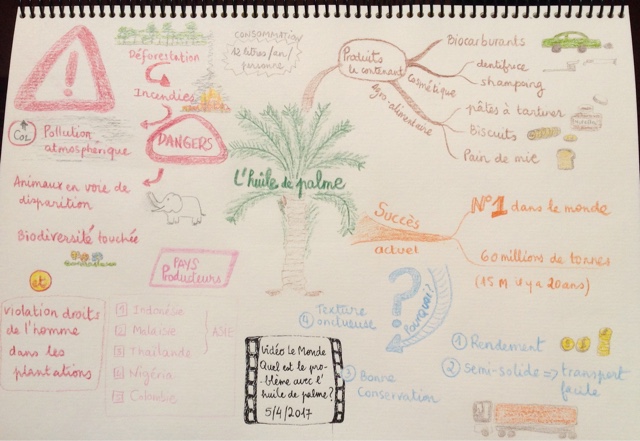 CONSOMMATION
12 litres/an/
personne
Déforestation
Incendies
CO2
Pollution
atmosphérique
DANGERS
Animaux en voie de
disparition
Biodiversité touchée
et
violation droits
de l'homme
dans les
plantations
PAYS
Producteurs
1 Indonésie
2 Malaisie
3 Thaïlande
4 Nigéria
5 Colombie
ASIE
L'huile de palme
Produits
le contenant
Biocarburants
Cosmétique
dentifrice
shampoing
Agro-alimentaire
pâtes à tartiner
Biscuits
Pain de mie
Succès
actuel
N°1 dans le monde
60 millions de tonnes
(15 M il y a 20 ans)
Pourquoi?
1 Rendement
2 semi-solide => transport
facile
3 Bonne
Conservation
4 Texture
onctueuse
Vidéo le Monde
Quel est le pro-
-blème avec l'
huile de palme?
5/4/2017